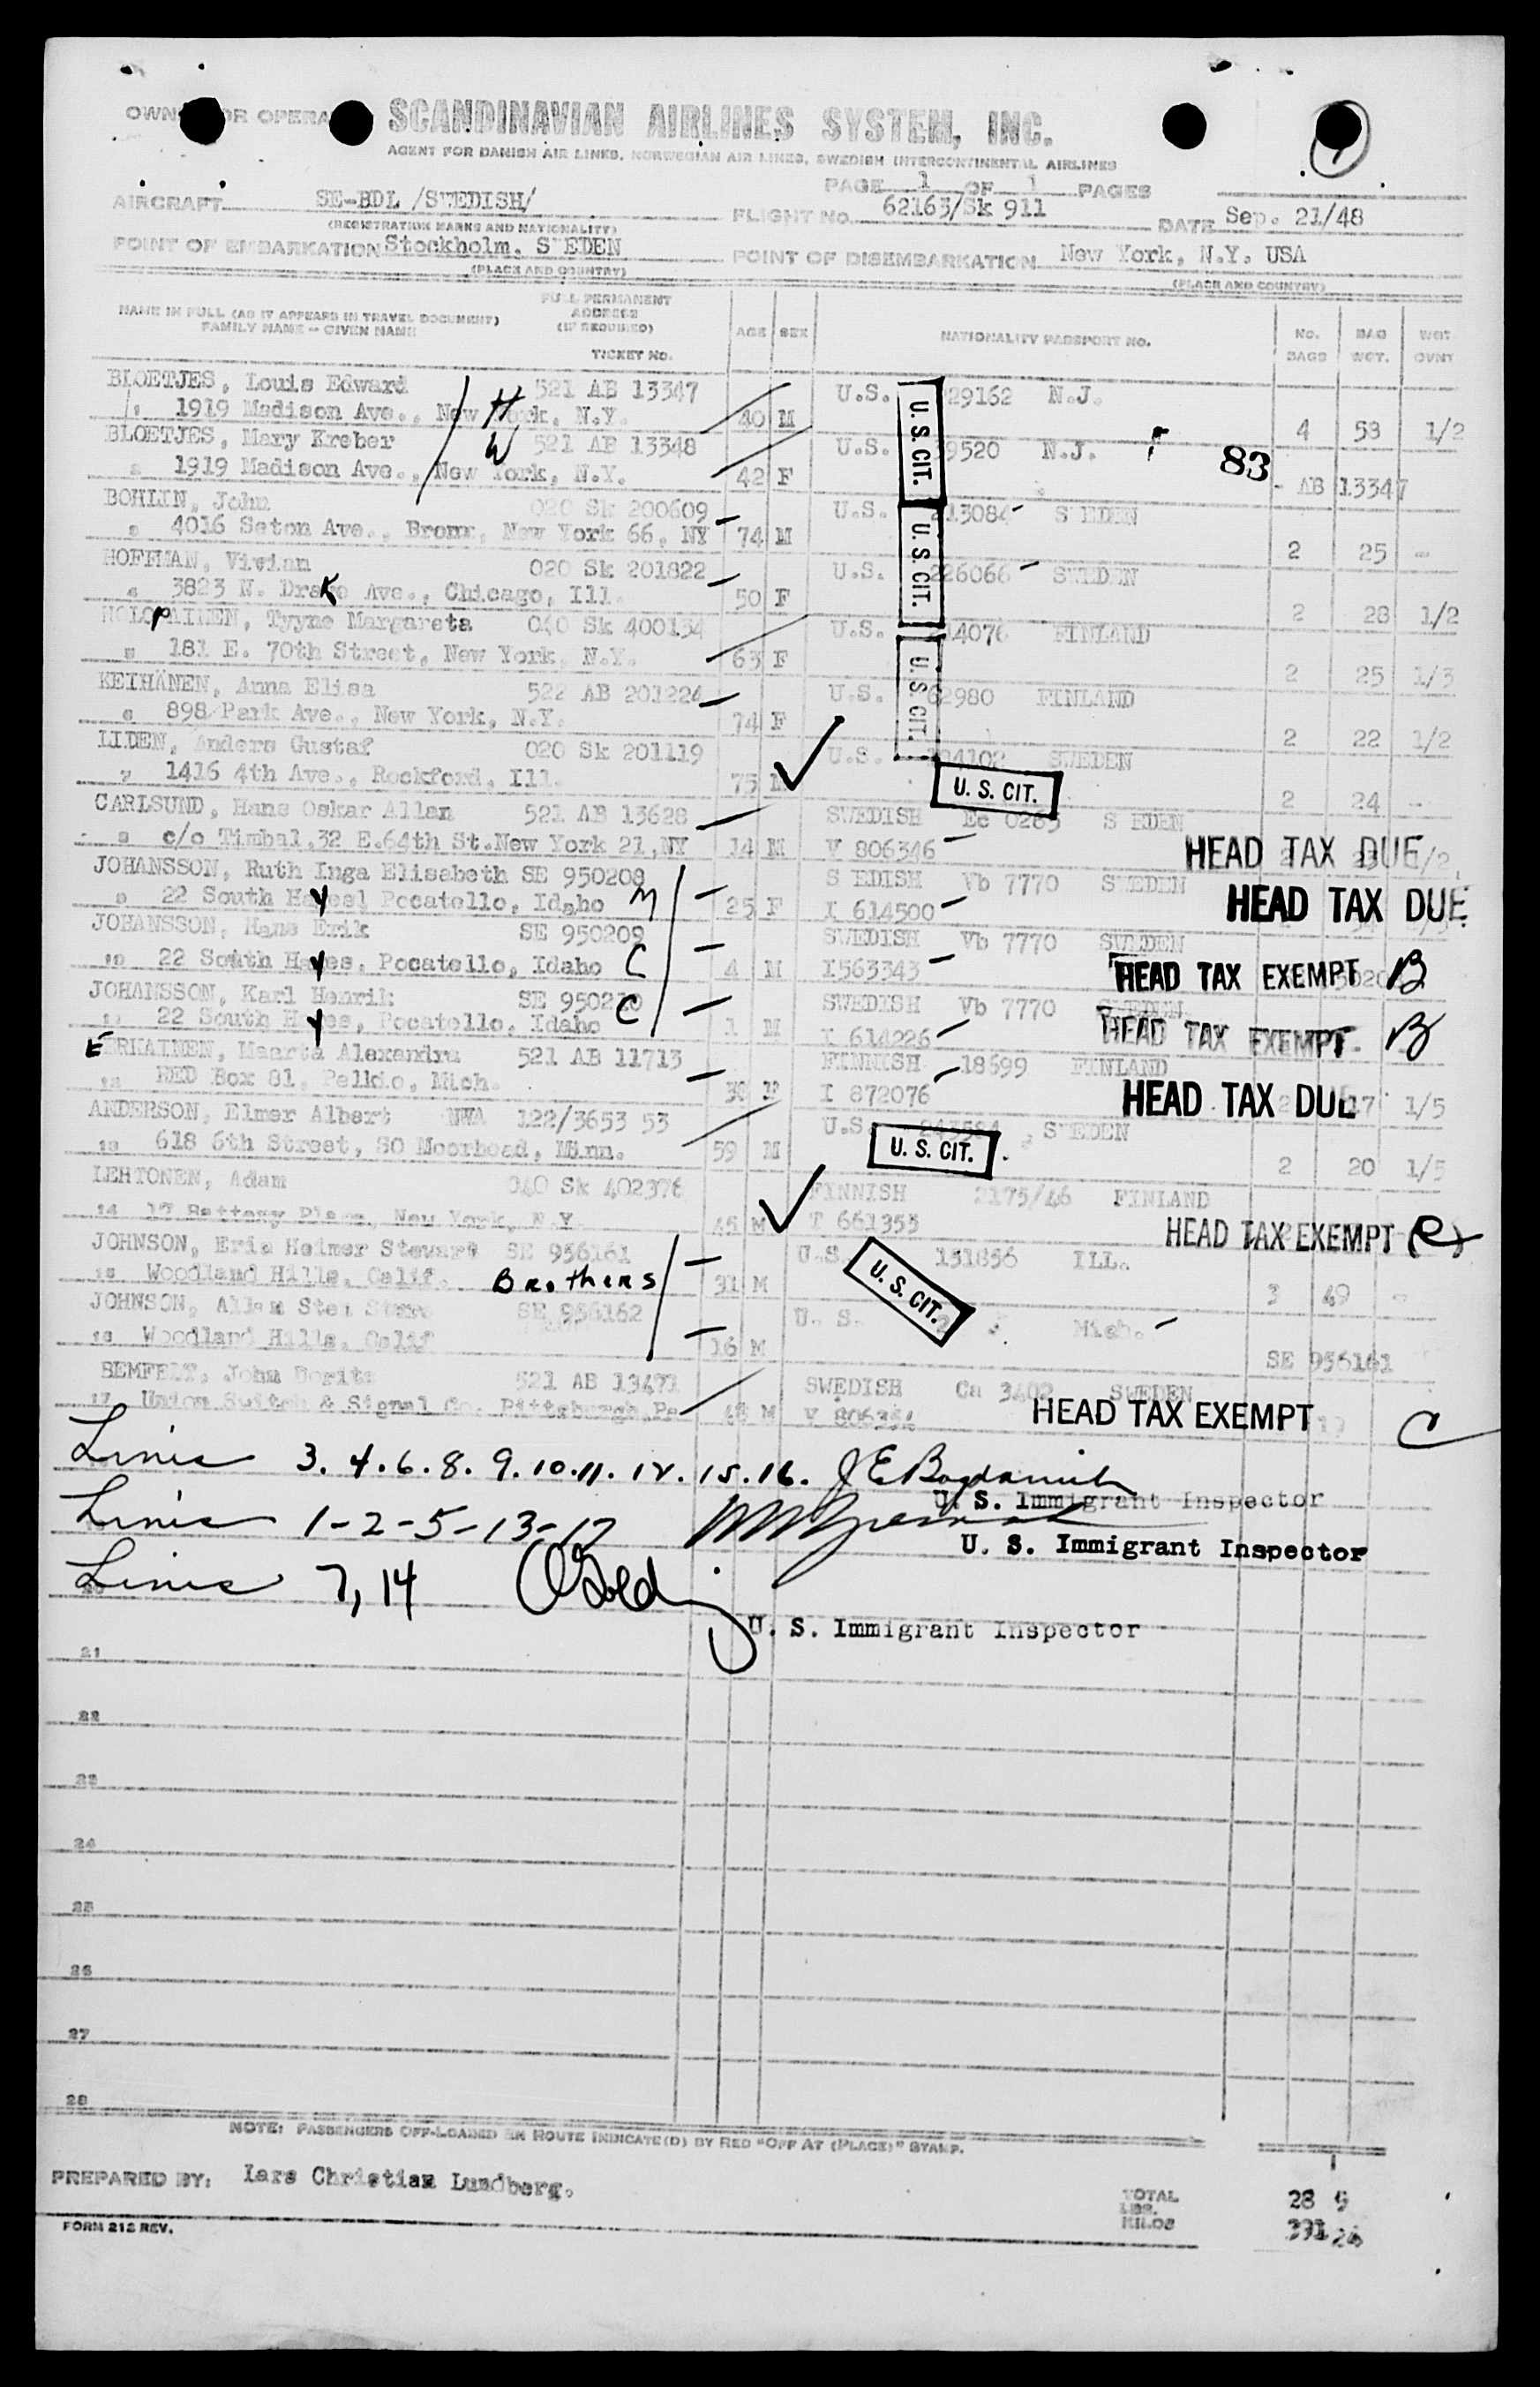 SCANDINAVIAN AIRLINES SYSTEM, INC.
AGENT FOR DANISH AIR LINES, NORWEGIAN AIR LINES, SWEDISH INTERCONTINENTAL AIRLINES
PAGE 1 OF 1 PAGES
AIRCRAFT SE-BDL /SWEDISH/ FLIGHT NO. 62163/Sk 911 DATE Sep. 21/48
(REGISTRATION MARKS AND NATIONALITY)
POINT OF EMBARKATION Stockholm. S EDEN POINT OF DISEMBARKATION New York, N.Y. USA
(PLACE AND COUNTRY) (PLACE AND COUNTRY)
NAME IN FULL (AS IT APPEARS IN TRAVEL DOCUMENT) FAMILY NAME - GIVEN NAME
FULL PERMANENT ADDRESS (IF REQUIRED)
TICKET NO. AGE SEX NATIONALITY PASSPORT NO. NO. BAGS BAG WGT. WGT OVNT
BLOETJES, Louis Edward 521 AB 13347 U.S. 29162 N.J.
1. 1919 Madison Ave., New York, N.Y. H 40 M U.S. CIT. 4 58 1/2
BLOETJES, Mary Kreber W 521 AB 13348 U.S. 9520 N.J. 83
2 1919 Madison Ave., New York, N.Y. 42 F - AB 13347
BOHLIN, John 020 Sk 200609 U.S. 213084 S EDEN
3 4016 Seton Ave., Bronx, New York 66, NY 74 M U.S. CIT. 2 25 -
HOFFMAN, Vivian 020 Sk 201822 U.S. 226066 SWEDEN
4 3823 N. Drake Ave., Chicago, Ill. 50 F 2 28 1/2
HOLOPAINEN, Tyyne Margareta 040 Sk 400134 U.S. 14076 FINLAND
5 181 E. 70th Street, New York, N.Y. 63 F 2 25 1/3
KEIHÄNEN, Anna Elisa 522 AB 201224 U.S. 62980 FINLAND
6 898 Park Ave., New York, N.Y. 74 F U.S. CIT. 2 22 1/2
LIDEN, Anders Gustaf 020 Sk 201119 U.S. 184102 SWEDEN
7 1416 4th Ave., Rockford, Ill. 75 M U. S. CIT. 2 24 -
CARLSUND, Hans Oskar Allan 521 AB 13628 SWEDISH Ec 0265 S EDEN
8 c/o Timbal,32 E.64th St.New York 21,NY 14 M V 806346 HEAD TAX DUE
JOHANSSON, Ruth Inga Elisabeth SE 950208 S EDISH Vb 7770 SWEDEN
9 22 South Hayes, Pocatello, Idaho M 25 F I 614500 HEAD TAX DUE
JOHANSSON, Hans Erik SE 950209 SWEDISH Vb 7770 SWEDEN
10 22 South Hayes, Pocatello, Idaho C 4 M I563343 HEAD TAX EXEMPT B
JOHANSSON, Karl Henrik SE 950210 SWEDISH Vb 7770 SWEDEN
11 22 South Hayes, Pocatello, Idaho C 1 M I 614226 HEAD TAX EXEMPT B
EERKAINEN, Maarta Alexandra 521 AB 11713 FINNISH 18699 FINLAND
12 RED Box 81, Pelkio, Mich. F I 872076 HEAD TAX DUE 17 1/5
ANDERSON, Elmer Albert NWA 122/3653 53 U.S. S EDEN
13 618 6th Street, SO Moorhead, Minn. 59 M U. S. CIT. 2 20 1/5
LEHTONEN, Adam 040 Sk 402376 FINNISH 2175/46 FINLAND
14 17 Battery Place, New York, N.Y. 45 M T 661353 HEAD TAX EXEMPT
JOHNSON, Eric Helmer Stewart SE 956161 U.S. 151856 ILL.
15 Woodland Hills, Calif. Brothers 31 M U. S. CIT. 3 49 -
JOHNSON, Allan Sten SE 956162 U. S. Mich.
16 Woodland Hills, Calif 16 M SE 956161
John 521 AB 13471 SWEDISH Ca 3402 SWEDEN
17 Union Switch & Signal Co. Pittsburgh,Pa 48 M V HEAD TAX EXEMPT C
Lines 3. 4. 6. 8. 9. 10. 11. 12. 15. 16.
U. S. Immigrant Inspector
Lines 1-2-5-13-17
U. S. Immigrant Inspector
Lines 7, 14
U. S. Immigrant Inspector
21
22
23
24
25
26
27
28
NOTE: PASSENGERS OFF-LOADED EN ROUTE INDICATE(D) BY RED "OFF AT (PLACE)" STAMP.
PREPARED BY: Lars Christian Lundberg.
TOTAL LBS. KILOS
28 9
391
FORM 212 REV.